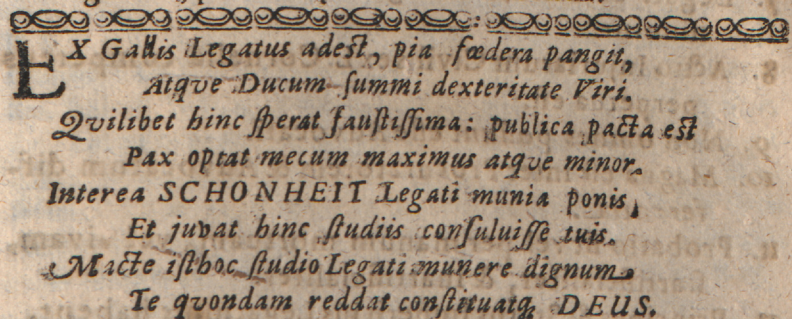 EX Gallis Legatus adest, pia fœdera pangit,
Atqve Ducum summi dexteritate Viri.
Qvilibet hinc sperat faustissima: publica pacta est
Pax optat mecum maximus atqve minor.
Interea SCHONHEIT Legati munia ponis,
Et juvat hinc studiis consuluisse tuis.
Macte isthoc studio Legati munere dignum
Te qvondam reddat constituatq; DEUS.